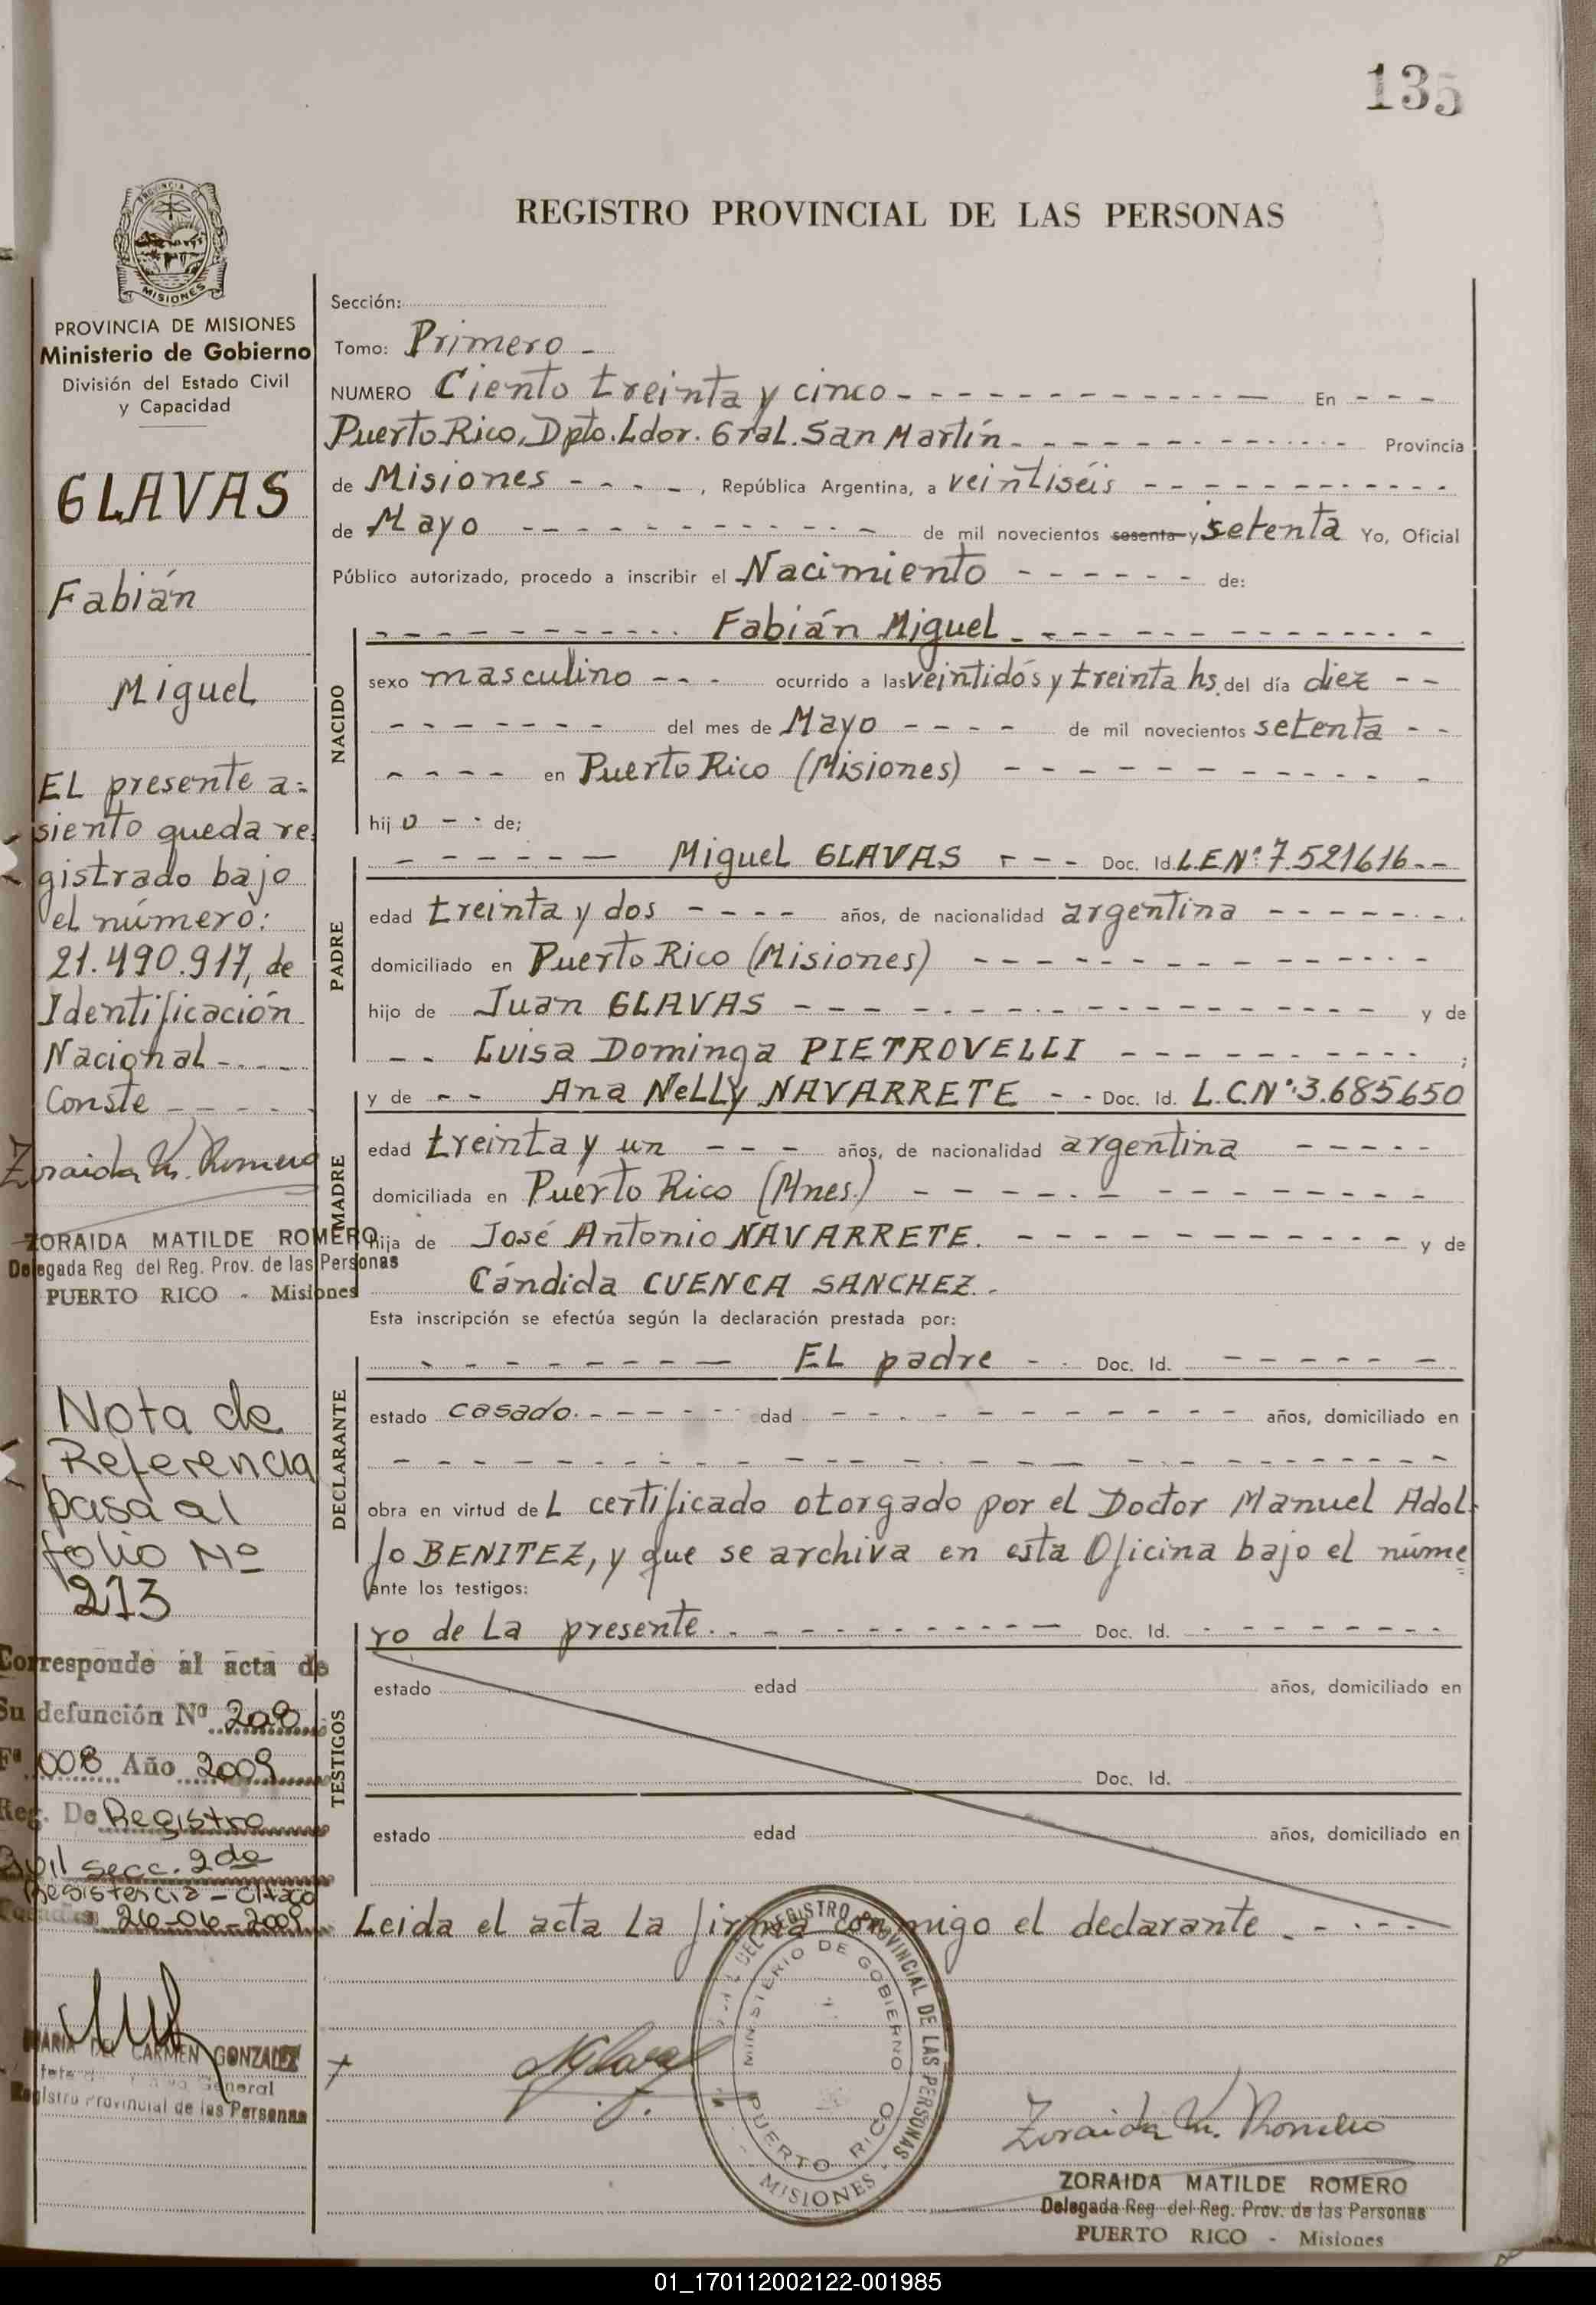 135
REGISTRO PROVINCIAL DE LAS PERSONAS
MISIONES
PROVINCIA DE MISIONES
Ministerio de Gobierno
División del Estado Civil
y Capacidad
GLAVAS
Fabián
Miguel
EL presente a=
siento queda re
gistrado bajo
el número:
21.490.917, de
Identificación
Nacional - . - - -
Conste - - - - -
Zoraida M. Romero
ZORAIDA MATILDE ROMERO
Delegada Reg del Reg. Prov. de las Personas
PUERTO RICO - Misiones
Nota de
Referencia
pasa al
folio Nº
213
Corresponde al acta de
Su defunción Nº 208
Fº 008 Año 2009
Reg. De Registro
Civil secc. 2da
Resistencia - Chaco
MARIA DEL CARMEN GONZALEZ
General
Registro Provincial de las Personas
Sección:
Tomo: Primero -
NUMERO Ciento treinta y cinco - - - - - - - - - - - - - En - - -
Puerto Rico, Dpto. Ldor. Gral. San Martín - - - - - - - - - - - Provincia
de Misiones - - - - , República Argentina, a veintiséis - - - - - - - - - - -
de Mayo - - - - - - - - - - - de mil novecientos sesenta y setenta Yo, Oficial
Público autorizado, procedo a inscribir el Nacimiento - - - - - - de:
- - - - - - - - - - Fabián Miguel - - - - - - - - - - - - - -
NACIDO
sexo masculino - - - ocurrido a las veintidós y treinta hs. del día diez - -
- - - - - - - del mes de Mayo - - - - de mil novecientos setenta - -
- - - - en Puerto Rico (Misiones) - - - - - - - - - - -
hij o - - de;
PADRE
- - - - - - Miguel GLAVAS - - - Doc. Id. L.E.Nº: 7.521616 - -
edad treinta y dos - - - - años, de nacionalidad argentina - - - - - - -
domiciliado en Puerto Rico (Misiones) - - - - - - - - - - - - -
hijo de Juan GLAVAS - - - - - - - - - - - - - - - y de
- - Luisa Dominga PIETROVELLI - - - - - - - - - - ;
MADRE
y de - - Ana NeLLy NAVARRETE - - Doc. Id. L.C.Nº: 3.685.650
edad treinta y un - - - años, de nacionalidad argentina - - - - -
domiciliada en Puerto Rico (Mnes.) - - - - - - - - - - - - -
hija de José Antonio NAVARRETE. - - - - - - - - - - - y de
Cándida CUENCA SANCHEZ. -
Esta inscripción se efectúa según la declaración prestada por:
DECLARANTE
- - - - - - - - EL padre - - Doc. Id. - - - - - -
estado casado. - - - - - edad - - - - - - - - - - - años, domiciliado en
- - - - - - - - - - - - - - - - - - - - - -
obra en virtud de L certificado otorgado por el Doctor Manuel Adol-
fo BENITEZ, y que se archiva en esta Oficina bajo el núme
ante los testigos:
ro de La presente. - - - - - - - - - - Doc. Id. - - - - - - -
TESTIGOS
estado edad años, domiciliado en
Doc. Id.
estado edad años, domiciliado en
Leida el acta La firma conmigo el declarante - - - - -
DEL REGISTRO PROVINCIAL DE LAS PERSONAS
MINISTERIO DE GOBIERNO
PUERTO RICO
MISIONES
Zoraida M. Romero
ZORAIDA MATILDE ROMERO
Delegada Reg del Reg. Prov. de las Personas
PUERTO RICO - Misiones
01_170112002122-001985